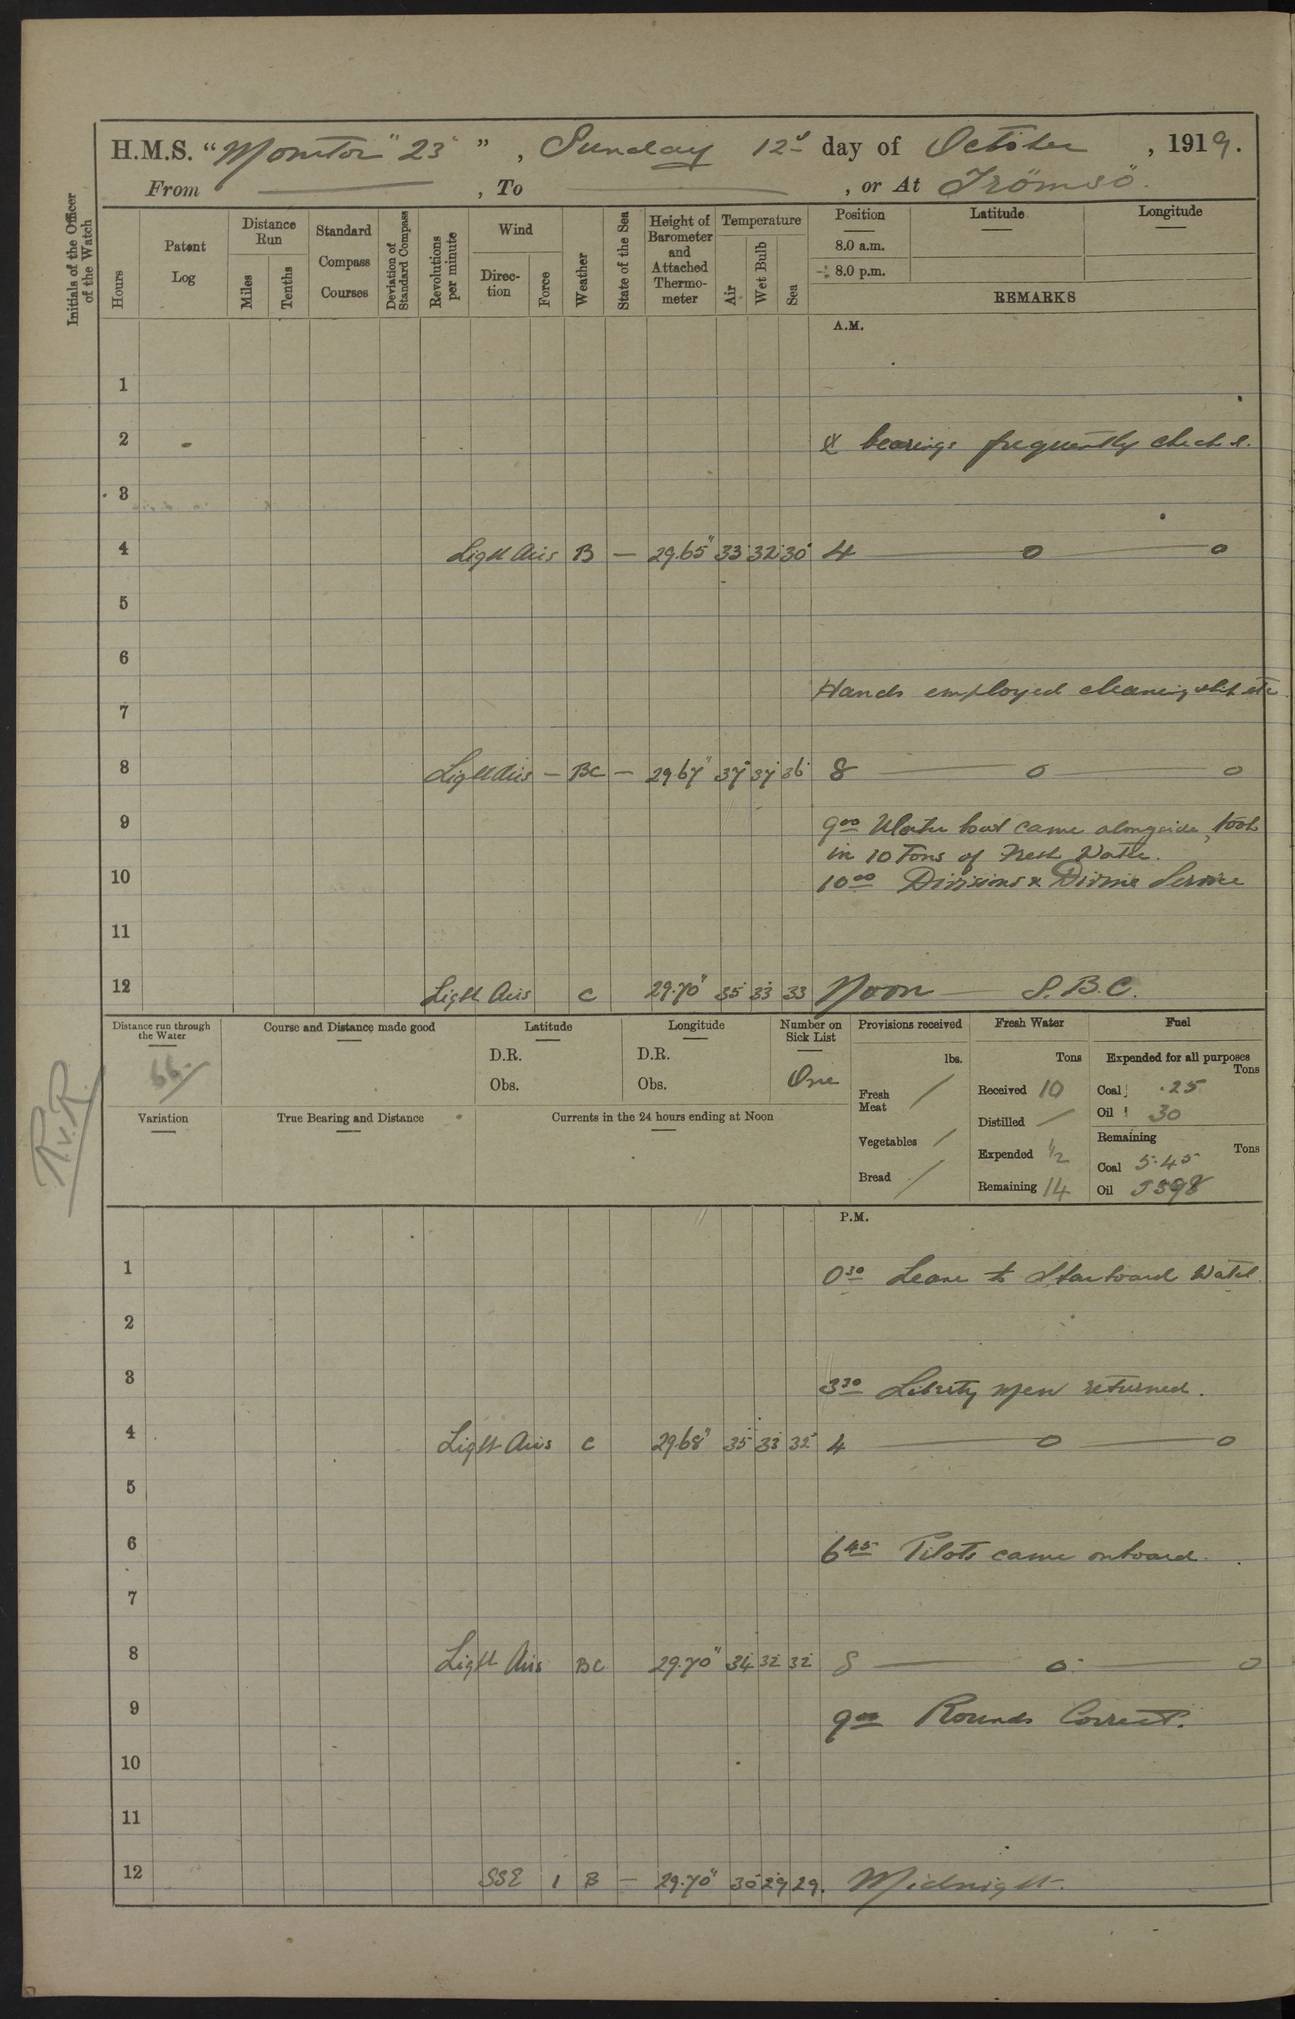 H.M.S. "Monitor "23" ", Sunday 12th day of October, 1919.
From ———, To ———, or At Trömsö.
Initials of the Officer of the Watch
Hours
Patent Log
Distance Run
Miles
Tenths
Standard Compass Courses
Deviation of Standard Compass
Revolutions per minute
Wind
Direction
Force
Weather
State of the Sea
Height of Barometer and Attached Thermometer
Temperature
Air
Wet Bulb
Sea
Position
8.0 a.m.
8.0 p.m.
Latitude
Longitude
REMARKS
A.M.
1
2 bearings frequently checkd.
3
4 Light Airs B — 29.65" 33 32 30 4 — o — o
5
6
Hands employed cleaning ship etc
7
8 Light Airs — BC — 29.67" 37 37 36 8 — o — o
9 9 00 Water boat came alongside, took
in 10 Tons of Fresh Water.
10 10 00 Divisions & Divine Service
11
12 Light Airs C 29.70" 35 33 33 Noon — S.B.C.
Distance run through the Water
66
Course and Distance made good
Latitude
D.R.
Obs.
Longitude
D.R.
Obs.
Number on Sick List
One
Variation
True Bearing and Distance
Currents in the 24 hours ending at Noon
Provisions received
lbs.
Fresh Meat /
Vegetables /
Bread /
Fresh Water
Tons
Received 10
Distilled /
Expended 1/2
Remaining 14
Fuel
Expended for all purposes
Tons
Coal .25
Oil 30
Remaining
Tons
Coal 5.45
Oil 5398
R.v.R.
P.M.
1 0 30 Leave to Starboard Watch.
2
3 3 30 Liberty men returned.
4 Light Airs C 29.68" 35 33 32 4 — o — o
5
6 6 45 Pilots came onboard.
7
8 Light Airs BC 29.70" 34 32 32 8 — o — o
9 9 00 Rounds Correct.
10
11
12 SSE 1 B — 29.70" 30 29 29. Midnight.